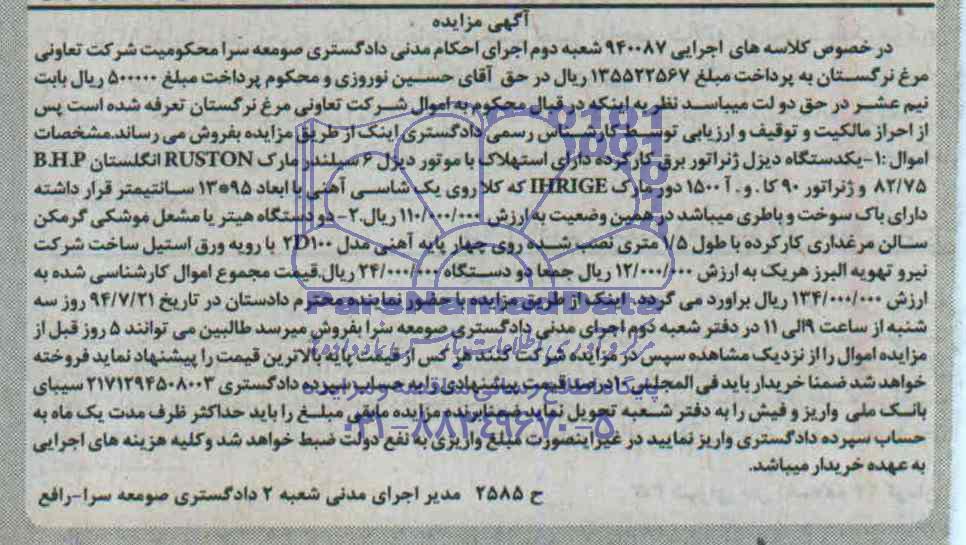 آگهی مزایده
در خصوص کلاسه های اجرایی ۹۴۰۰۸۷ شعبه دوم اجرای احکام مدنی دادگستری صومعه سرا محکومیت شرکت تعاونی
مرغ نرگستان به پرداخت مبلغ ۱۳۵۵۲۲۵۶۷ ریال در حق آقای حسین نوروزی و محکوم پرداخت مبلغ ۵۰۰۰۰۰ ریال بابت
نیم عشر در حق دو لت میباسد نظر به اینکه در قبال محکوم به اموال شرکت تعاونی مرغ نرگستان تعرفه شده است پس
از احراز مالکیت و توقیف و ارزیابی توسط کارشناس رسمی دادگستری اینک از طریق مزایده بفروش می رساند.مشخصات
اموال:۱-یکدستگاه دیزل ژنراتور برق کارکرده دارای استهلاک با موتور دیزل ۶ سیلندر مارک RUSTON انگلستان B.H.P
۸۲/۷۵ و ژنراتور ۹۰ کا. و. آ ۱۵۰۰ دور مارک IHRIGE که کلا روی یک شاسی آهنی با ابعاد ۹۵*۱۳ سانتیمتر قرار داشته
دارای باک سوخت و باطری میباشد در همین وضعیت به ارزش ۱۱۰/۰۰۰/۰۰۰ ریال.۲-دو دستگاه هیتر یا مشعل موشکی گرمکن
سالن مرغداری کارکرده با طول ۱/۵ متری نصب شده روی چهار پایه آهنی مدل ۲D۱۰۰ با رویه ورق استیل ساخت شرکت
نیرو تهویه البرز هریک به ارزش ۱۲/۰۰۰/۰۰۰ ریال جمعا دو دستگاه ۲۴/۰۰۰/۰۰۰ ریال.قیمت مجموع اموال کارشناسی شده به
ارزش ۱۳۴/۰۰۰/۰۰۰ ریال براورد می گردد. اینک از طریق مزایده با حضور نماینده محترم دادستان در تاریخ ۹۴/۷/۲۱ روز سه
شنبه از ساعت ۹الی ۱۱ در دفتر شعبه دوم اجرای مدنی دادگستری صومعه سرا بفروش میرسد طالبین می توانند ۵ روز قبل از
مزایده اموال را از نزدیک مشاهده سپس در مزایده شرکت کنند هر کس از قیمت پایه بالاترین قیمت را پیشنهاد نماید فروخته
خواهد شد ضمنا خریدار باید فی المجلس ۱۰درصد قیمت پیشنهادی را به حساب سپرده دادگستری ۲۱۷۱۲۹۴۵۰۸۰۰۳ سیبای
بانک ملی واریز و فیش را به دفتر شعبه تحویل نماید ضمنا برنده مزایده مابقی مبلغ را باید حداکثر ظرف مدت یک ماه به
حساب سپرده دادگستری واریز نمایید در غیر اینصورت مبلغ واریزی به نفع دولت ضبط خواهد شد و کلیه هزینه های اجرایی
به عهده خریدار میباشد.
ح ۲۵۸۵ مدیر اجرای مدنی شعبه ۲ دادگستری صومعه سرا-رافع
ParsNamadData
پایگاه اطلاع رسانی مناقصه و مزایده
۰۲۱-۸۸۳۴۹۶۷۰-۵